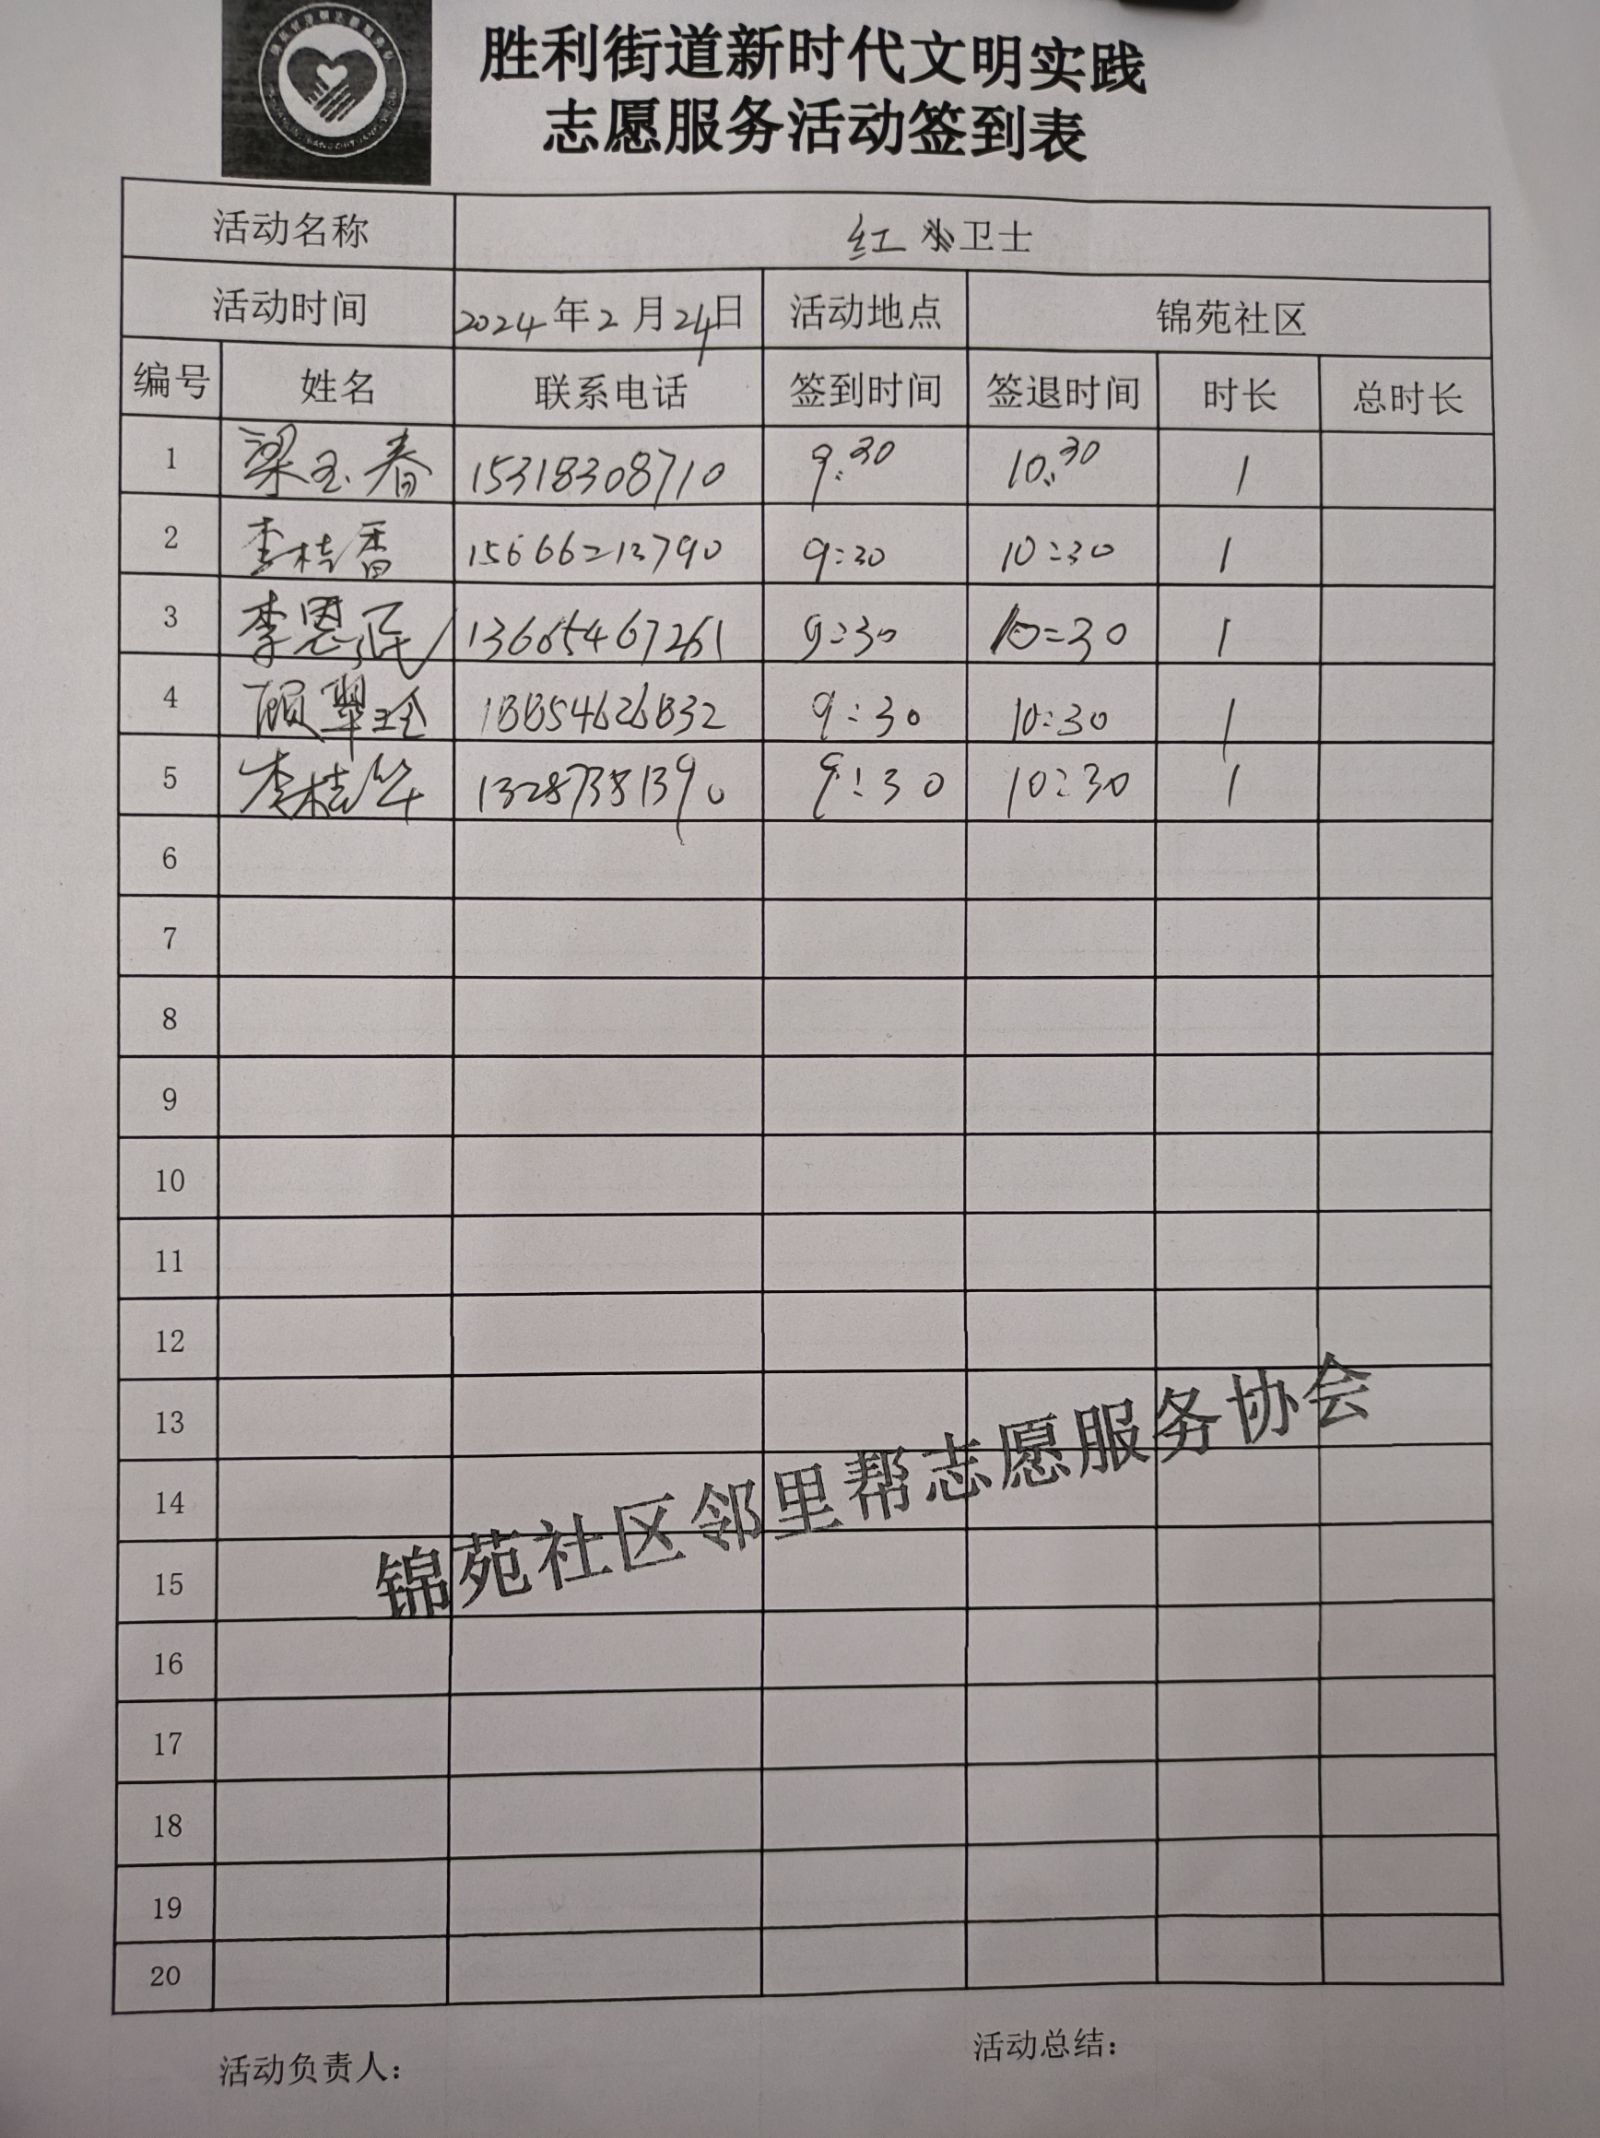 胜利街道新时代文明实践
志愿服务活动签到表
活动名称 红 卫士
活动时间 2024年2月24日 活动地点 锦苑社区
编号 姓名 联系电话 签到时间 签退时间 时长 总时长
1 梁玉春 15318308710 9:30 10:30 1
2 李桂香 15666213790 9:30 10:30 1
3 李恩民 13665467261 9:30 10:30 1
4 顾翠玲 18854626832 9:30 10:30 1
5 李桂华 13287381390 9:30 10:30 1
6
7
8
9
10
11
12
13
14
15
16
17
18
19
20
锦苑社区邻里帮志愿服务协会
活动负责人：
活动总结：